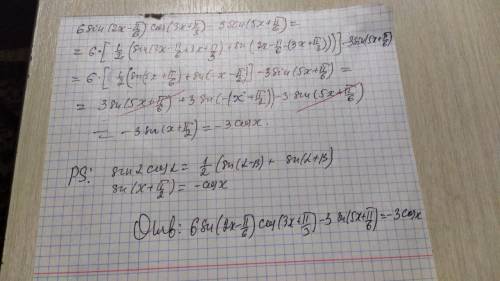 6 sin(2x-π/6) cos(3x+π/3) - 3 sin(5x+π/6) =
= 6·[1/2(sin(2x-π/6+3x+π/3)+sin(2x-π/6-(3x+π/3)))]-3sin(5x+π/6)
= 6·[1/2(sin(5x+π/6)+sin(-x-π/2)]-3sin(5x+π/6) =
= 3sin(5x+π/6)+3sin(-(x+π/2))-3sin(5x+π/6)
= -3sin(x+π/2) = -3cosx.
PS: sinα cosα = 1/2(sin(α-β)+ sin(α+β)
sin(x+π/2) = -cosx
Ответ: 6sin(2x-π/6)cos(3x+π/3)-3sin(5x+π/6)=-3cosx